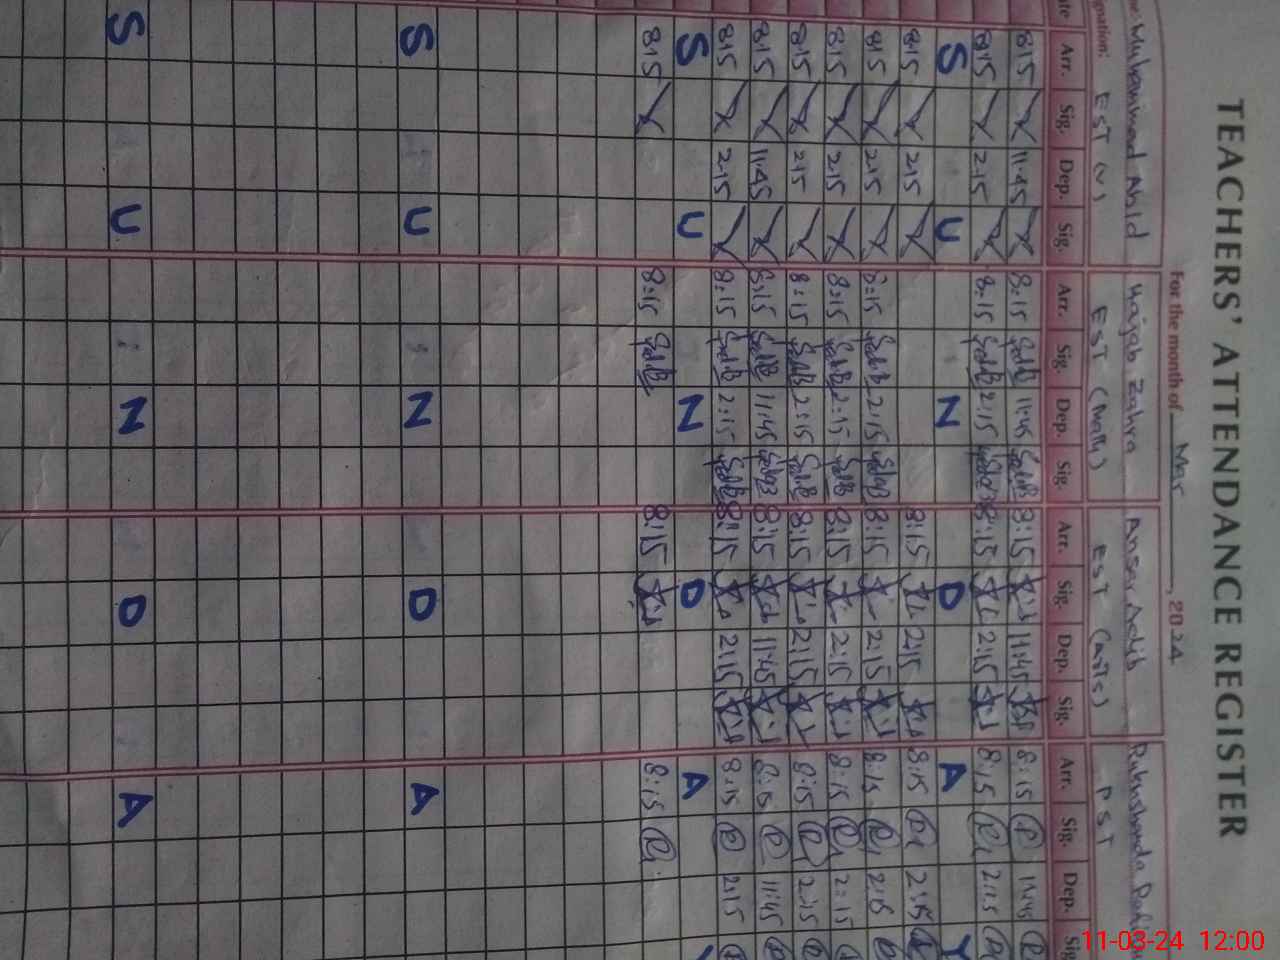 TEACHERS' ATTENDANCE REGISTER
For the month of Mar, 2024
Muhammad Abid Rajab Zahra Ansar Adib Rukhshanda
EST (V) EST (Math) EST (arts) PST
Arr. Sig. Dep. Sig. Arr. Sig. Dep. Sig. Arr. Sig. Dep. Sig. Arr. Sig. Dep. Sig.
8:15 11:45 8:15 11:45 8:15 11:45 8:15 11:45
8:15 2:15 8:15 2:15 8:15 2:15 8:15 2:15
S U N D A Y
8:15 2:15 8:15 2:15 8:15 2:15
8:15 2:15 8:15 2:15 8:15 2:15 8:15 2:15
8:15 2:15 8:15 2:15 8:15 2:15 8:15 2:15
8:15 2:15 8:15 2:15 8:15 2:15 8:15 2:15
8:15 11:45 8:15 11:45 8:15 11:45 8:15 11:45
8:15 2:15 8:15 2:15 8:15 2:15 8:15 2:15
S U N D A Y
8:15 8:15 8:15 8:15
S U N D A
S U N D A
11-03-24 12:00